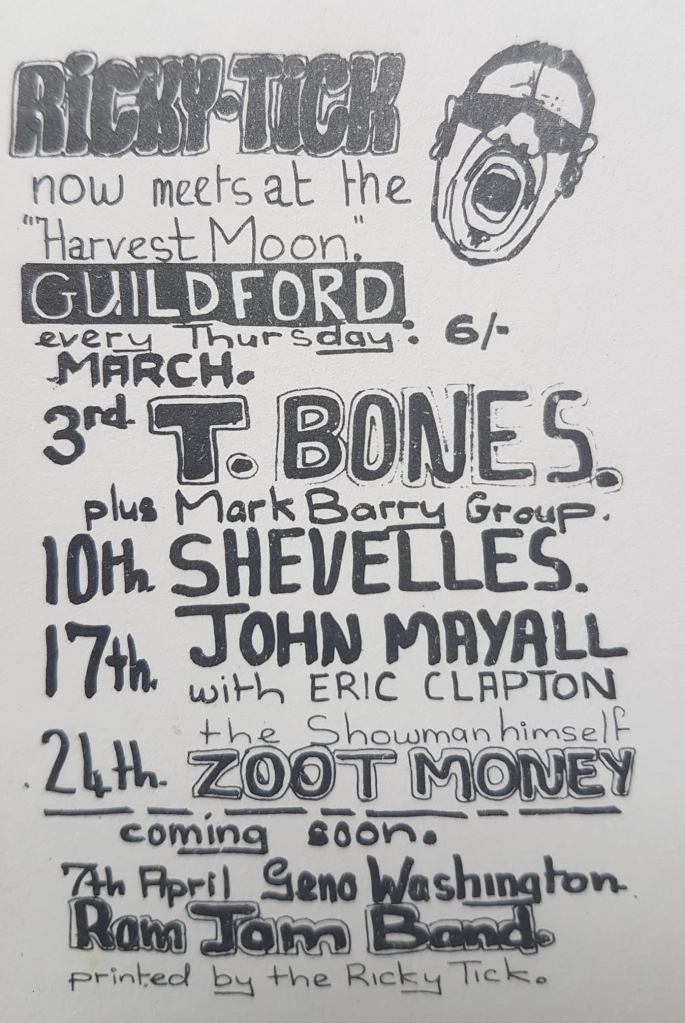 RiCKY-TiCK
now meets at the
"Harvest Moon."
GUILDFORD
every Thursday: 6/-
MARCH.
3rd T. BONES.
plus Mark Barry Group.
10th. SHEVELLES.
17th. JOHN MAYALL
with ERIC CLAPTON
the Showman himself
24th. ZOOT MONEY
coming soon.
7th April Geno Washington
Ram Jam Band.
printed by the Ricky Tick.